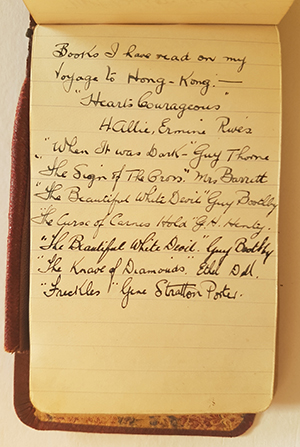 Books I have read on my
Voyage to Hong-Kong:—
"Hearts Courageous"
Hallie, Ermine Rives
"When It was Dark" Guy Thorne
"The Sign of The Cross." Mrs Barrett
"The Beautiful White Devil" Guy Boothby
The Curse of Carnes Hold G.H. Henty.
"The Beautiful White Devil." Guy Boothby
"The Knave of Diamonds." Ethel Dell.
"Freckles" Gene Stratton Porter.